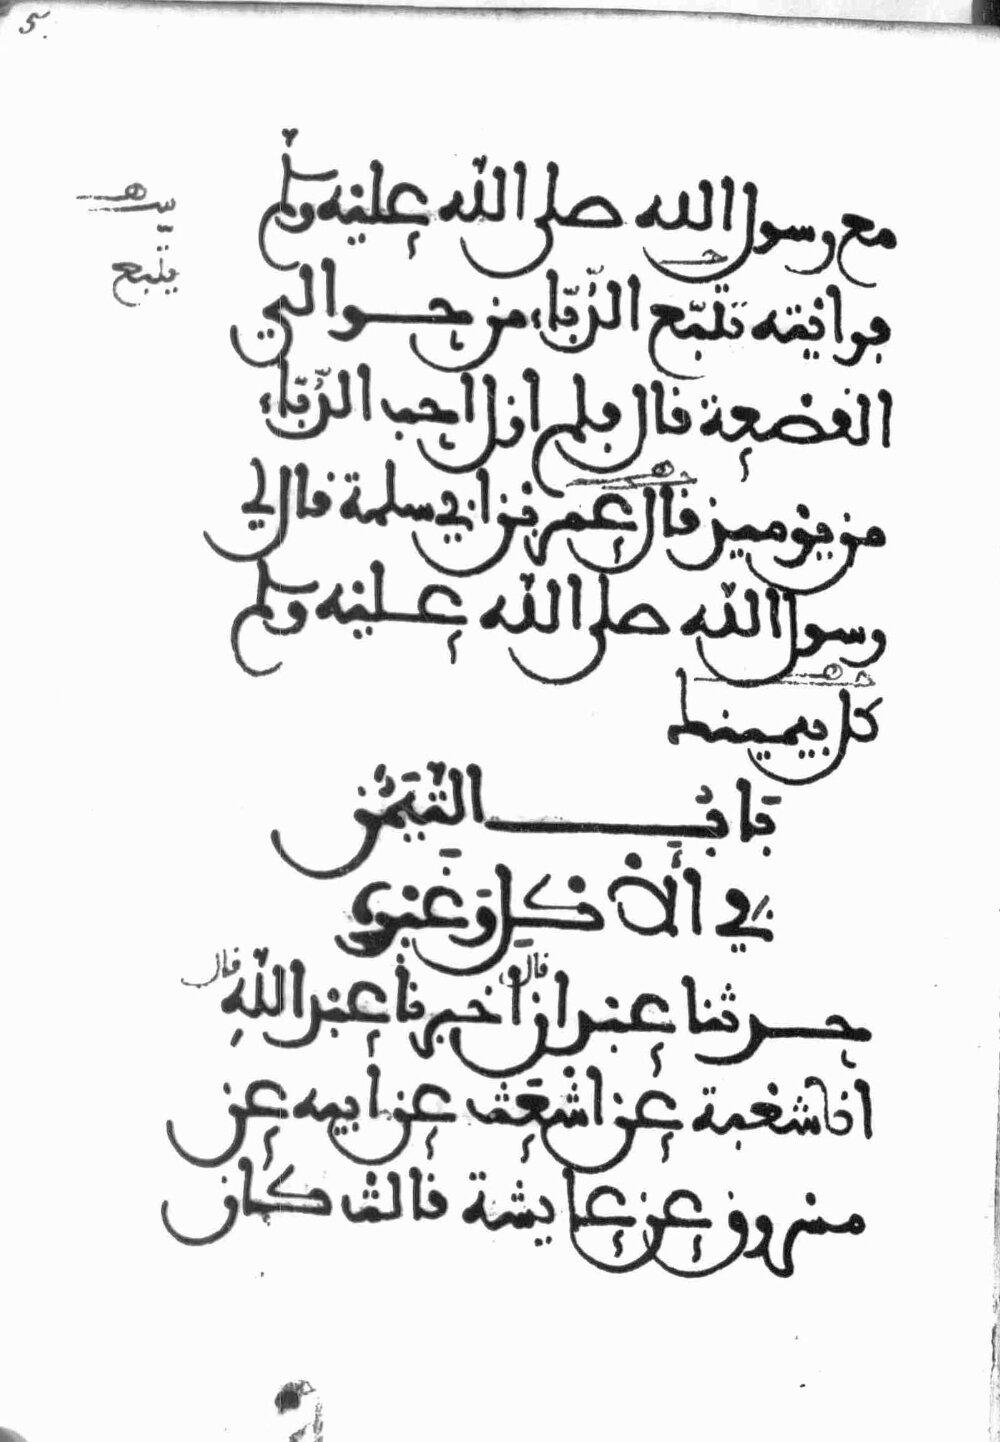 5.
مع رسول الله صلى الله عليه وسلم
فرايته تتبع الدبا من حوالي
يتبع
القصعة قال فلم ازل احب الدباء
من يوميذ قال عمر بن ابي سلمة قال لي
رسول الله صلى الله عليه وسلم
كل بيمينك
باب التيمن
في الاكل وغيره
حدثنا عبدان قال اخبرنا عبد الله قال
انا شعبة عن اشعث عن ابيه عن
مسروق عن عايشة قالت كان